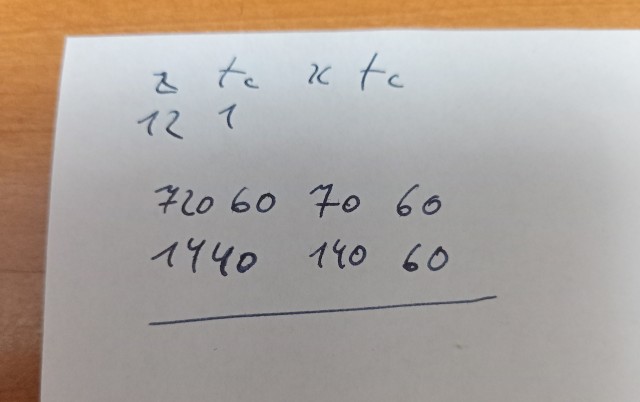 z tc x tc
12 1
720 60 70 60
1440 140 60